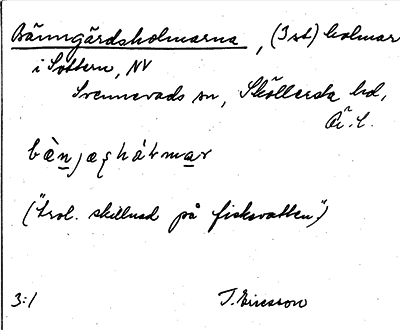 Bänngärdsholmarna, (3 st) holmar
i Sottern, NV
Svennevads sn, Sköllersta hd,
Ö.L.
("trol. skillnad på fiskevatten")
3:1 T. Ericsson